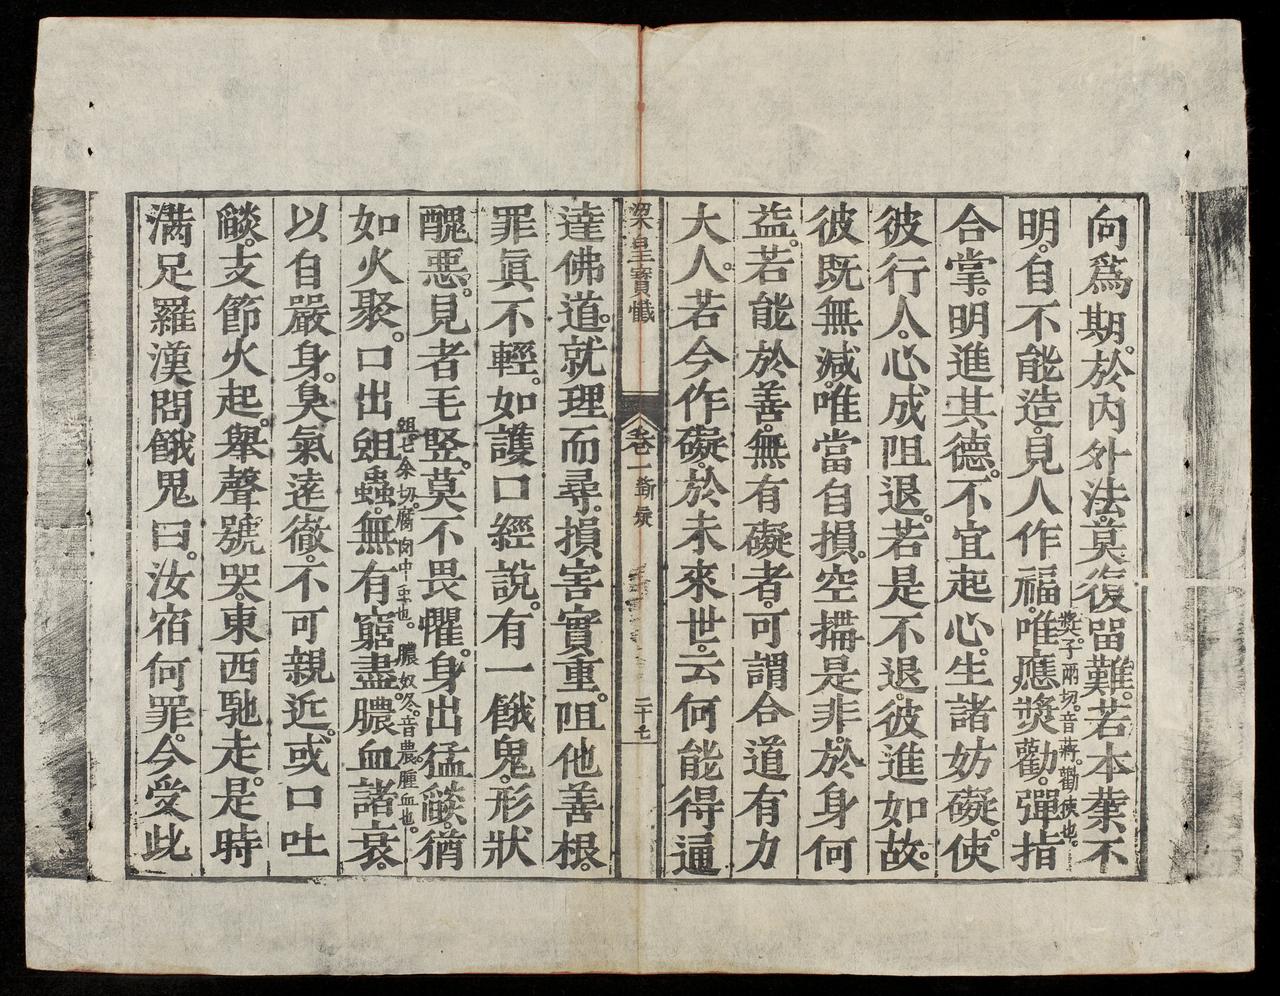 向爲期。於內外法。莫復留難。若本業不
明。自不能造。見人作福。唯應獎勸。彈指
獎。子兩切。音蔣。勸使也。
合掌。明進其德。不宜起心。生諸妨礙。使
彼行人。心成阻退。若是不退。彼進如故。
彼既無減。唯當自損。空搆是非。於身何
益。若能於善。無有礙者。可謂合道有力
大人。若今作礙。於未來世。云何能得通
梁皇寶懺
卷一
二十七
達佛道。就理而尋。損害實重。阻他善根。
罪眞不輕。如護口經說。有一餓鬼。形狀
醜惡。見者毛竪。莫不畏懼。身出猛燄。猶
蛆。七余切。腐肉中虫也。膿。奴冬。音農。腫血也。
如火聚。口出蛆蟲。無有窮盡。膿血諸衰。
以自嚴身。臭氣遠徹。不可親近。或口吐
燄。支節火起。舉聲號哭。東西馳走。是時
滿足羅漢問餓鬼曰。汝宿何罪。今受此